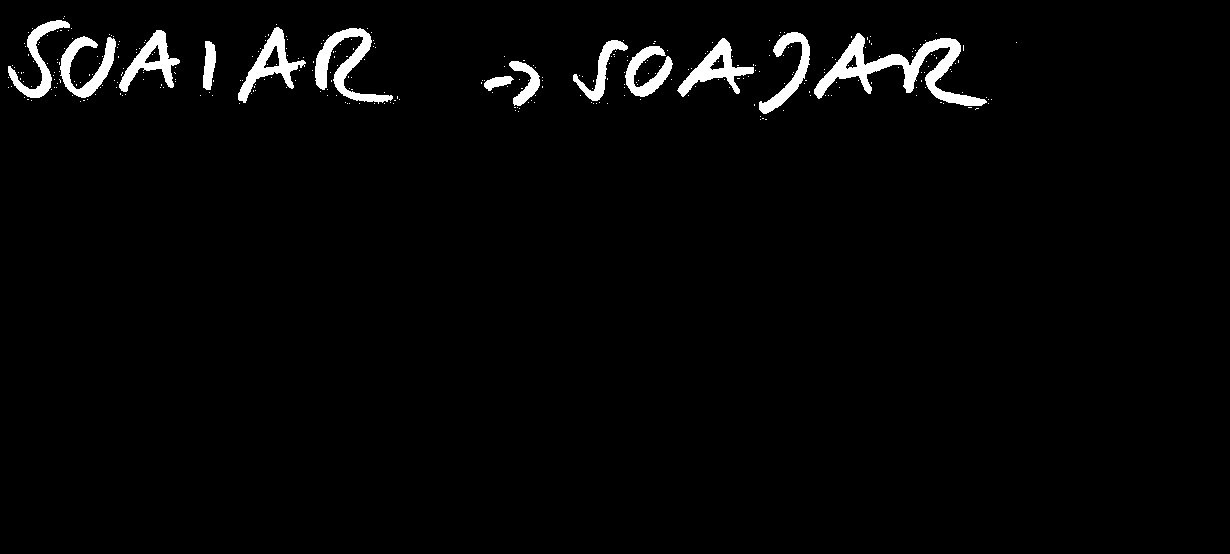 SOAIAR → SOAJAR